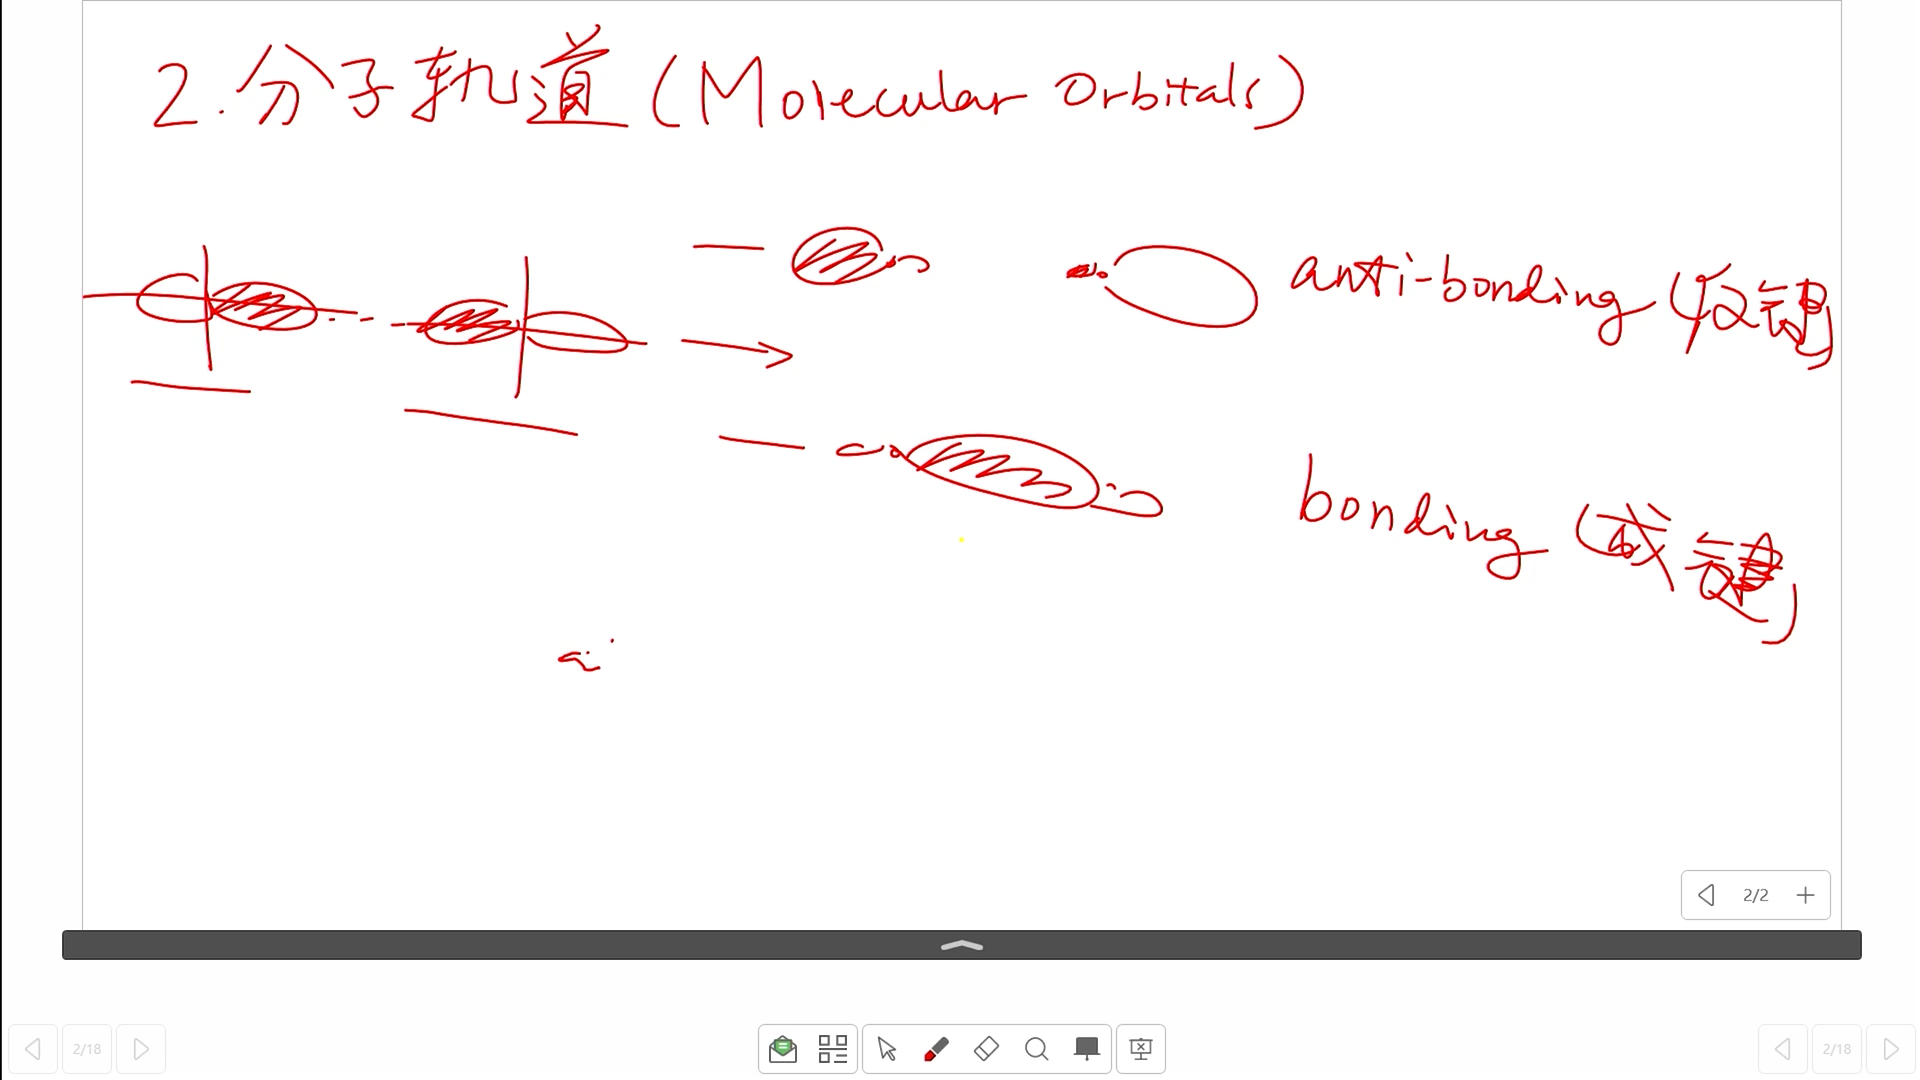 2.分子轨道(Molecular Orbitals)
anti-bonding(反键)
bonding(成键)
2/2
2/18
2/18